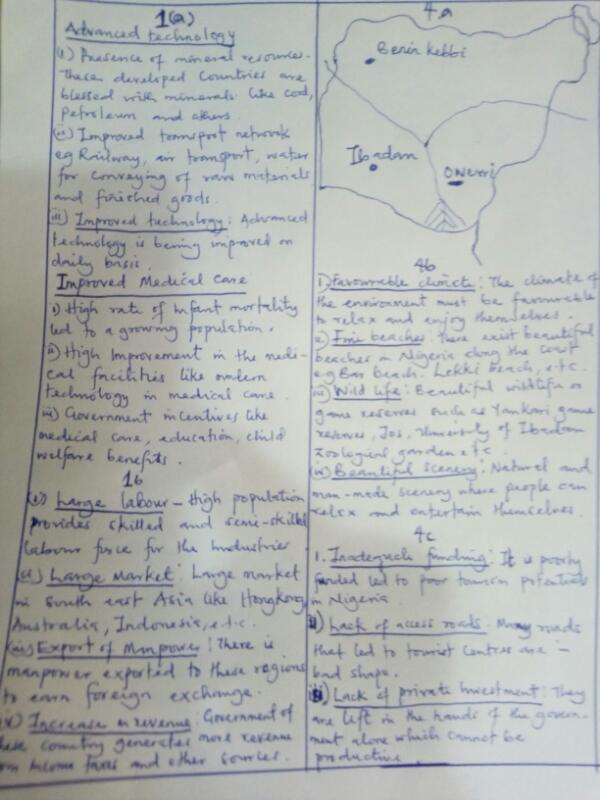 1(a)
Advanced technology
(i) Presence of mineral resources-
These developed Countries are
blessed with minerals like Coal,
Petroleum and others.
(ii) Improved transport network
eg Railway, air transport, water
for conveying of raw materials
and finished goods.
iii) Improved technology: Advanced
technology is being improved on
daily basis.
Improved Medical care
i) High rate of Infant mortality
led to a growing population.
ii) High Improvement in the medi-
cal facilities like modern
technology in medical care.
iii) Government incentives like
medical care, education, child
welfare benefits.
1b
(i) Large labour - High population
provides skilled and semi-skilled
labour force for the Industries
(ii) Large Market: Large market
in South east Asia like Hongkong,
Australia, Indonesia, e.t.c.
(iii) Export of Manpower: There is
manpower exported to these regions
to earn foreign exchange.
(iv) Increase in revenue: Government of
these country generates more revenue
from Income taxes and other sources.
4a
Benin Kebbi
Ibadan
Owerri
4b
i) Favourable climate: The climate of
the environment must be favourable
to relax and enjoy themselves.
ii) Fine beaches: There exist beautiful
beaches in Nigeria along the coast
e.g Bar beach. Lekki beach, e.t.c.
iii) Wild life: Beautiful wildlife or
game reserves such as Yankari game
reserves, Jos, University of Ibadan
Zoological garden e.t.c.
iv) Beautiful scenery: Natural and
man-made scenery where people can
relax and entertain themselves.
4c
1. Inadequate funding: It is poorly
funded led to poor tourism potentials
in Nigeria.
ii) Lack of access roads: Many roads
that led to tourist centres are in
bad shape.
iii) Lack of private Investment: They
are left in the hands of the govern-
ment alone which cannot be
productive